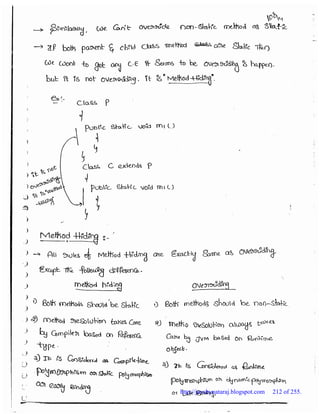 → Similarly, We Can't override non-static method as Static
→ If both parent & child Class method are Static then
We won't to get any C.E it Seems to be overriding is happen.
but it is not overriding. It is "Method Hiding".
Ex:-
Class P
{
public static void m1()
{
}
}
Class C extends P
{
public static void m1()
{
}
}
it is not
overriding
it is method
hiding
Method Hiding :-
→ All rules of Method Hiding are Exactly Same as overriding.
Except the following difference.
method hiding
overriding
1) Both methods Should be Static
1) Both methods should be non-static
2) method resolution takes Care
by Compiler based on Reference
type.
2) Method resolution always takes
Care by JVM based on Runtime
object.
3) It is Considered as Compiletime
polymorphism or Static polymorphism
or early Binding
3) It is Considered as Runtime
polymorphism or dynamic polymorphism
or
212 of 255.